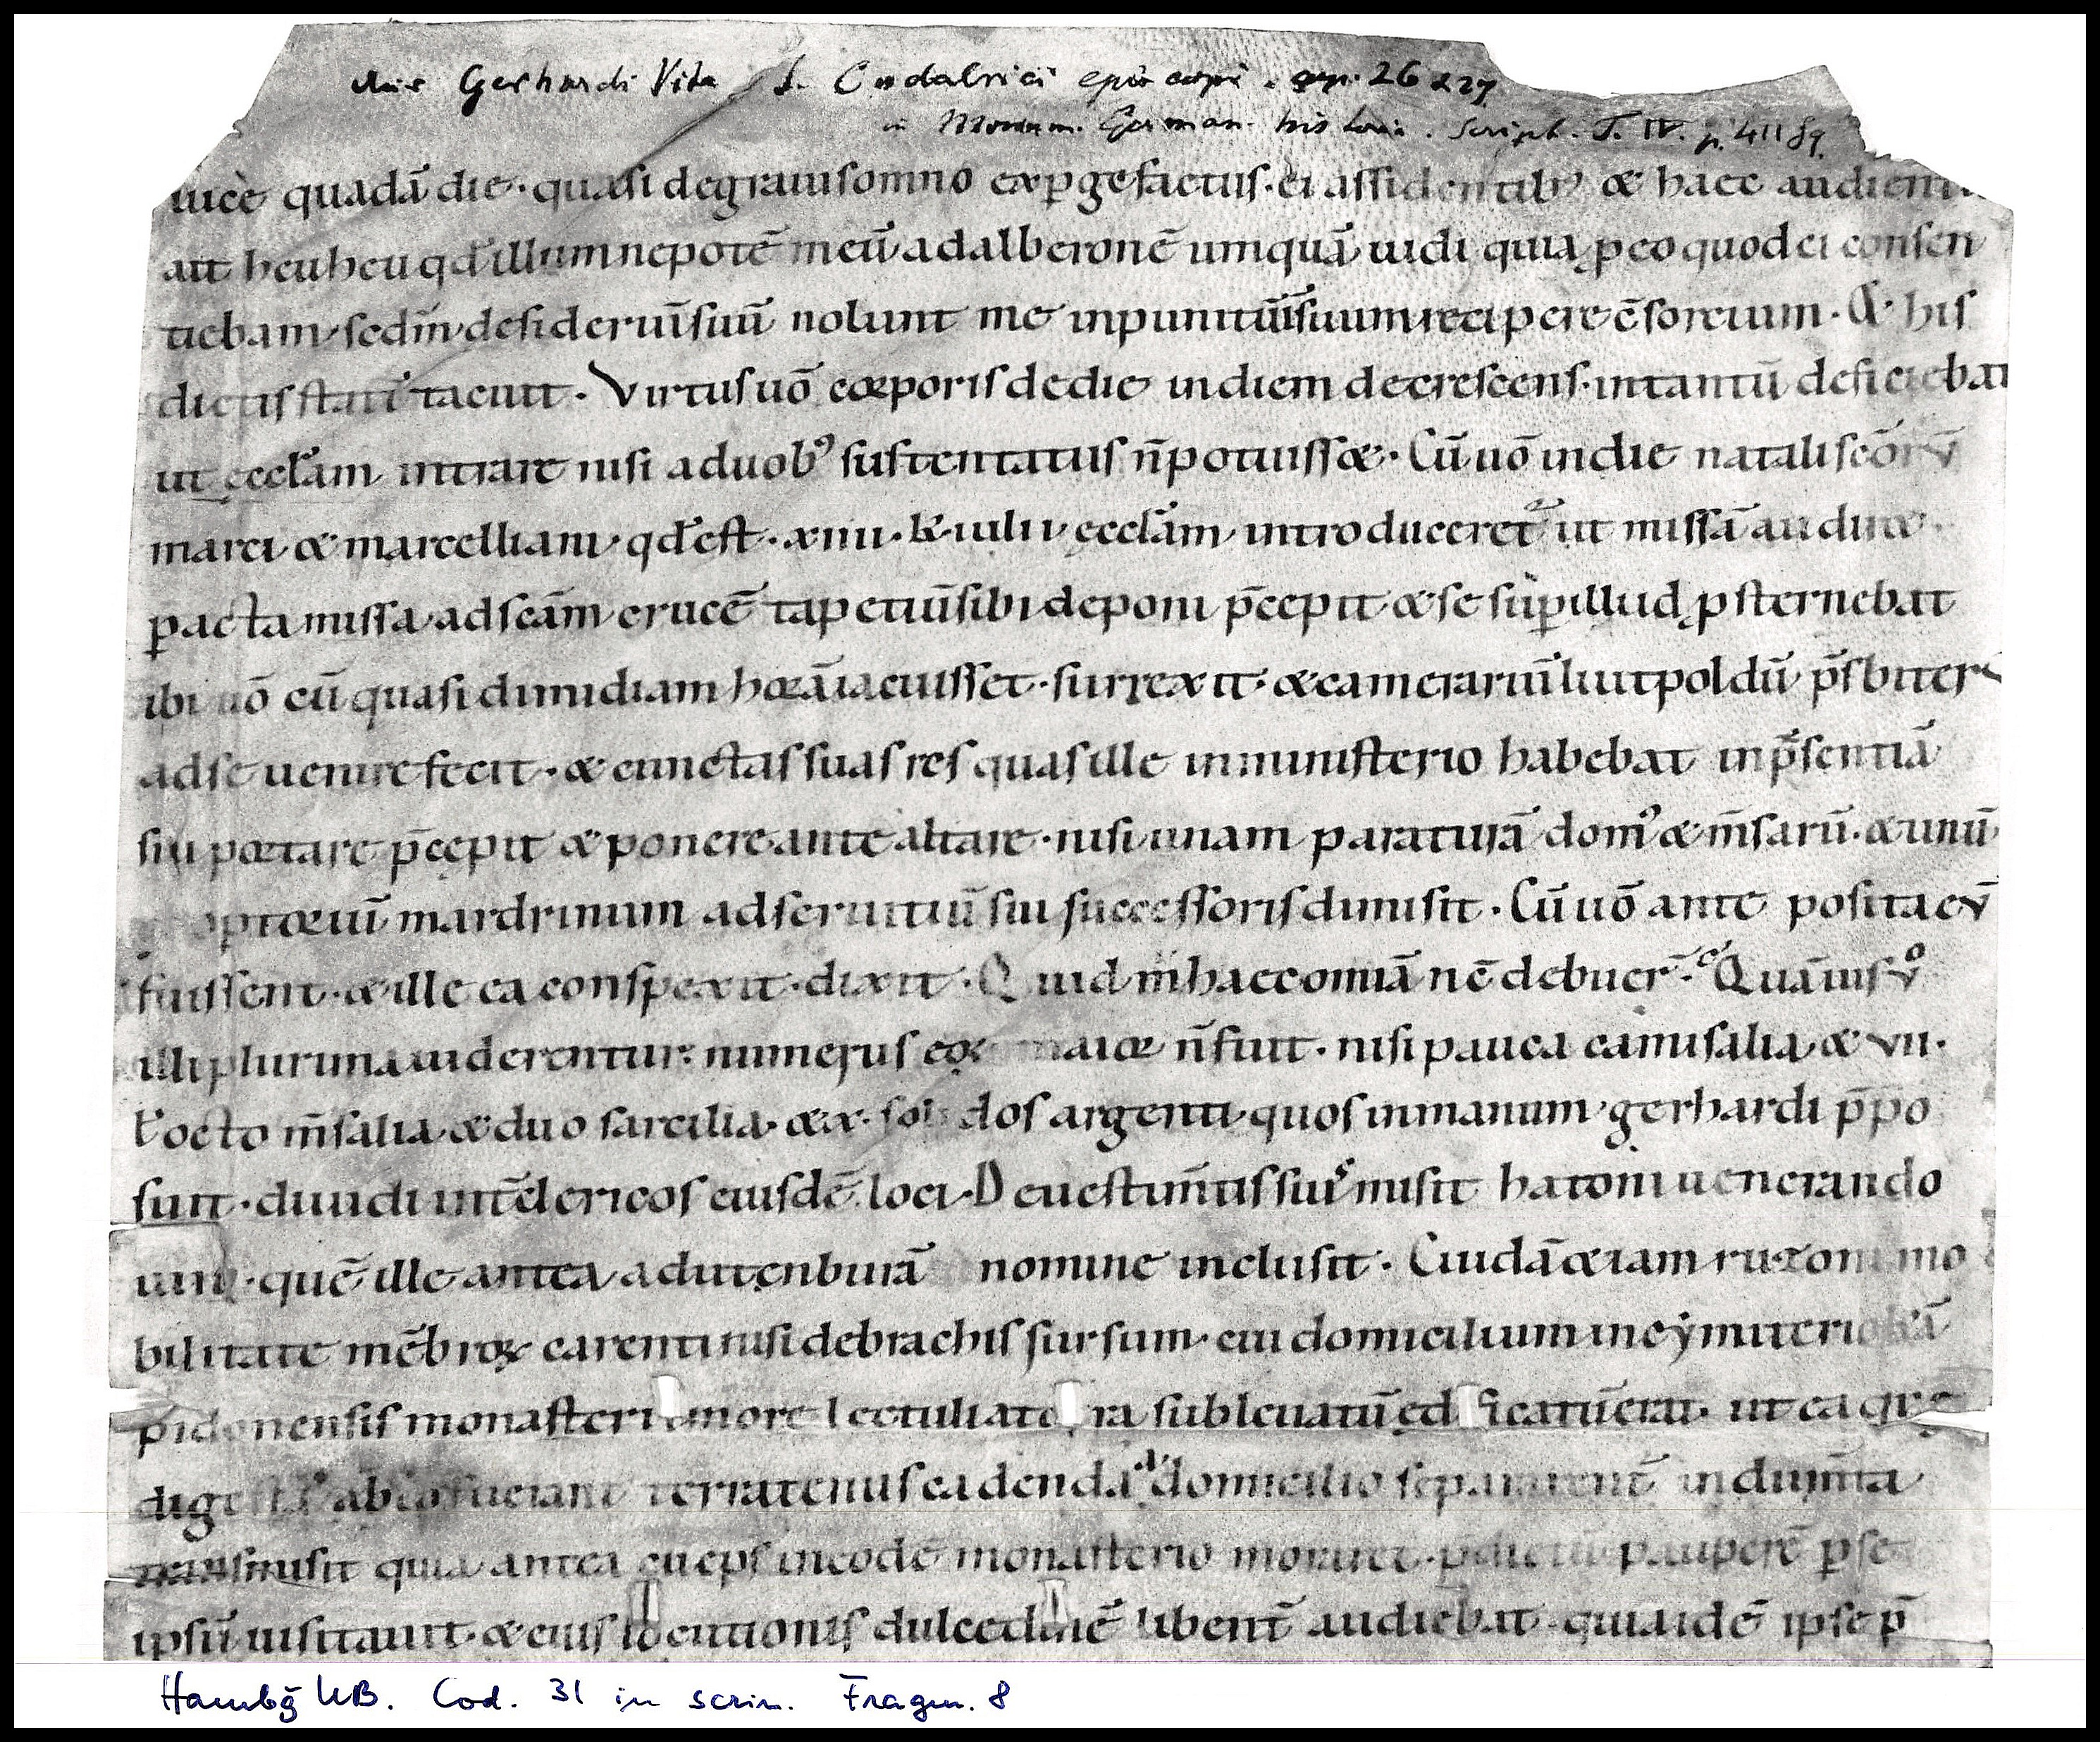 Aus Gerhardi Vita S. Oudalrici episcopi. cap. 26 & 27
in Monum. German. histori. Script. T. IV. p. 411 sq.
uice quadā die· quasi de graui somno exp̱gefactus· ei assidentib; & haec audienti
ait heu heu qd̄ illum nepotē meū adalberonē umquā uidi quia ꝓ eo quod ei consen
tiebam sedm̄ desideriū suū nolunt me inpunitū in suum recipere c̄sortium· & his
dictis statī tacuit· Virtus uō corporis de die in diem decrescens· in tantū deficiebat
ut eccl̄am intrare nisi a duob; sustentatus n̄ potuisset· Cū uō in die natali sc̄orū
marci & marcelliani qd̄ est· xiiii· k̄ iulii ęccl̄am introduceret᷑ ut missā audir&
ꝑacta missa ad sc̄am crucē tapetiū sibi deponi p̄cepit & se sup̱ illud ꝓsternebat
ibi uō cū quasi dimidiam horā iacuisset· surrexit· & camerariū liutpoldū p̄sbiter
ad se uenire fecit· & cunctas suas res quas ille in ministerio habebat in p̄sentiā
sui portare p̄cepit & ponere ante altare· nisi unam paraturā domꝰ & m̄sarū· & unū
optoriū mardrinum ad seruitiū sui successoris dimisit· Cū uō ante posita eū
fuissent· & ille ea conspexit· dixit· Quid m̄ haec omiā nc̄ debuer̄· Quāuis ůo
illi plurima uiderentur: numerus eoꝝ maior n̄ fuit· nisi pauca camisalia & vii·
ł octo m̄salia & duo sarcilia· & x· solidos argenti quos in manum gerhardi p̄po
suit· diuidi int̄ clericos eiusdē loci· De uestim̄tis suis misit hatoni uenerando
uiro· quē ille antea ad utenburā nomine inclusit· Cuidā etiam ruzoni mo
bilitate mēbroꝝ carenti nisi de brachis sursum cui domicilium in cẏmiterio
pidonensis monasterii more lectuli a terra subleuatū ędificatū erat· ut ea quę
digesta ab eo fuerant terratenus cadendā domicilio separarent᷑ indum̄ta
transmisit quia antea cū ep̄s in eodē monasterio moraret᷑· p̄dictū pauperē p̱ se
ipsū uisitauit· & eius locutionis dulcedinē libent̄ audiebat· quia idē ipse p̄
Hambg UB. Cod. 31 in scrin. Fragm. 8